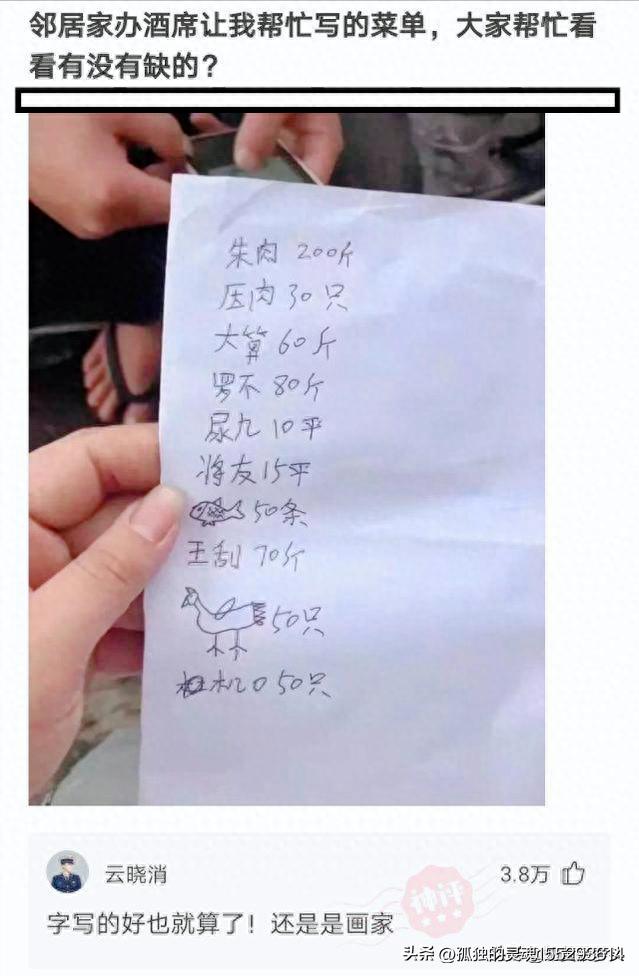 邻居家办酒席让我帮忙写的菜单，大家帮忙看
看有没有缺的？
朱肉 200斤
压肉 30只
大算 60斤
罗不 80斤
尿九 10平
将友 15平
50条
王刮 70斤
50只
机 50只
云晓消
3.8万
神评
字写的好也就算了！还是是画家
头条 @孤独的灵魂155293614